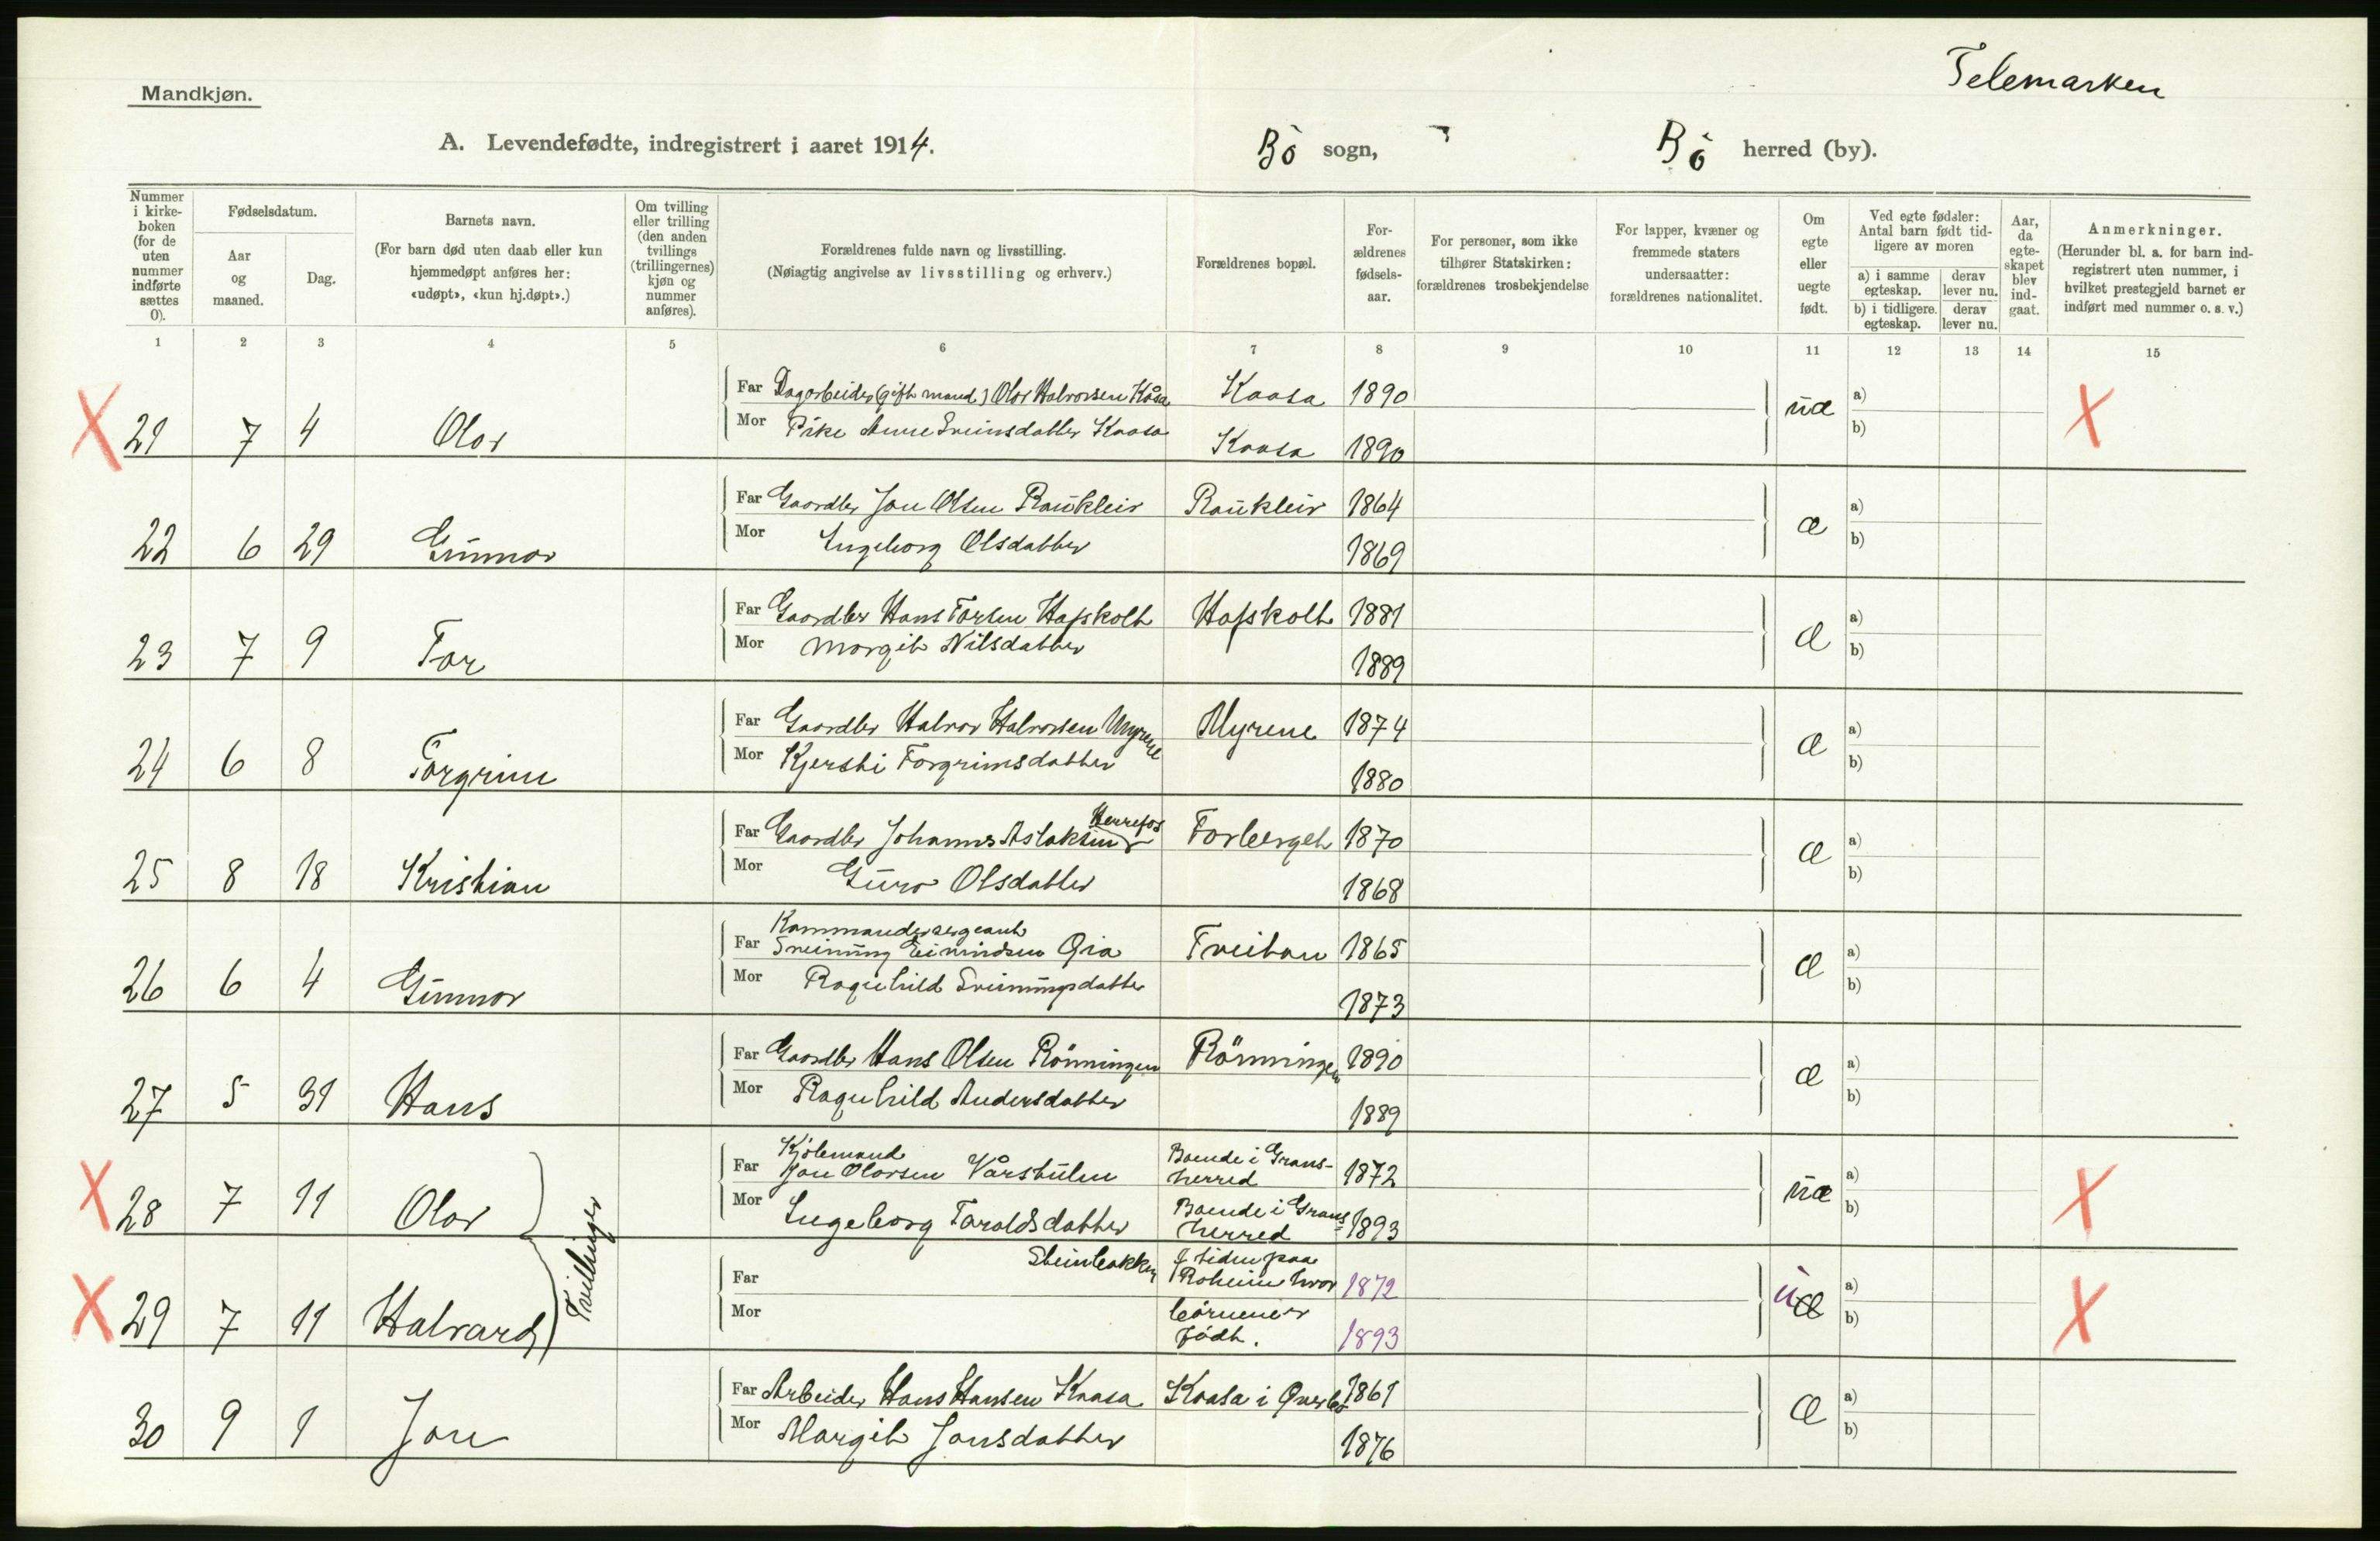 Telemarken
Mandkjøn.
A. Levendefødte, indregistrert i aaret 1914.
Bö sogn,
Bö herred (by).
Nummer i kirke-boken (for de uten nummer indførte sættes 0).
Fødselsdatum.
Aar og maaned.
Dag.
Barnets navn.
(For barn død uten daab eller kun hjemmedøpt anføres her: «udøpt», «kun hj.døpt».)
Om tvilling eller trilling (den anden tvillings (trillingernes) kjøn og nummer anføres).
Forældrenes fulde navn og livsstilling.
(Nøiagtig angivelse av livsstilling og erhverv.)
Forældrenes bopæl.
For-ældrenes fødsels-aar.
For personer, som ikke tilhører Statskirken: forældrenes trosbekjendelse
For lapper, kvæner og fremmede staters undersaatter: forældrenes nationalitet.
Om egte eller uegte født.
Ved egte fødsler: Antal barn født tid-ligere av moren
a) i samme egteskap.
derav lever nu.
b) i tidligere egteskap.
derav lever nu.
Aar, da egte-skapet blev ind-gaat.
Anmerkninger.
(Herunder bl. a. for barn ind-registrert uten nummer, i hvilket prestegjeld barnet er indført med nummer o. s. v.)
1 2 3 4 5 6 7 8 9 10 11 12 13 14 15
X 21 7 4 Olav Far Dagarbeider (gift mand) Olav Halvorsen Kåsa Kaasa 1890 uæ a) X
Mor Pike Anne Sveinsdatter Kaasa Kaasa 1890 b)
22 6 29 Gunnar Far Gaardbr Jon Olsen Raukleiv Raukleiv 1864 æ a)
Mor Ingeborg Olsdatter 1869 b)
23 7 9 Tor Far Gaardbr Hans Torsen Hafskolt Hafskolt 1881 æ a)
Mor Margit Nilsdatter 1889 b)
24 6 8 Torgrim Far Gaardbr Halvor Halvorsen Myrene Myrene 1874 æ a)
Mor Kjersti Torgrimsdatter 1880 b)
25 8 18 Kristian Far Gaardbr Johannes Aslaksen Herrefos Torberget 1870 æ a)
Mor Guro Olsdatter 1868 b)
26 6 4 Gunnar Far Kommandersergeant Sveinung Eivindsen Tveitan 1865 æ a)
Mor Ragnhild Sveinungsdatter 1873 b)
27 5 31 Hans Far Gaardbr Hans Olsen Rönningen Rönningen 1890 æ a)
Mor Ragnhild Andersdatter 1889 b)
X 28 7 11 Olav Tvillinger Far Jon Olavsen Vårstulen Boende i Grans-herred 1872 uæ a) X
Mor Ingeborg Taraldsdatter Boende i Grans=herred 1893 b)
X 29 7 11 Halvard Far Steinbakken f tiden paa Roheim hvor 1872 uæ a) X
Mor börnene er födt. 1893 b)
30 9 1 Jon Far Arbeider Hans Hansen Kaasa Kaasa i Överbö 1861 æ a)
Mor Margit Jonsdatter 1876 b)